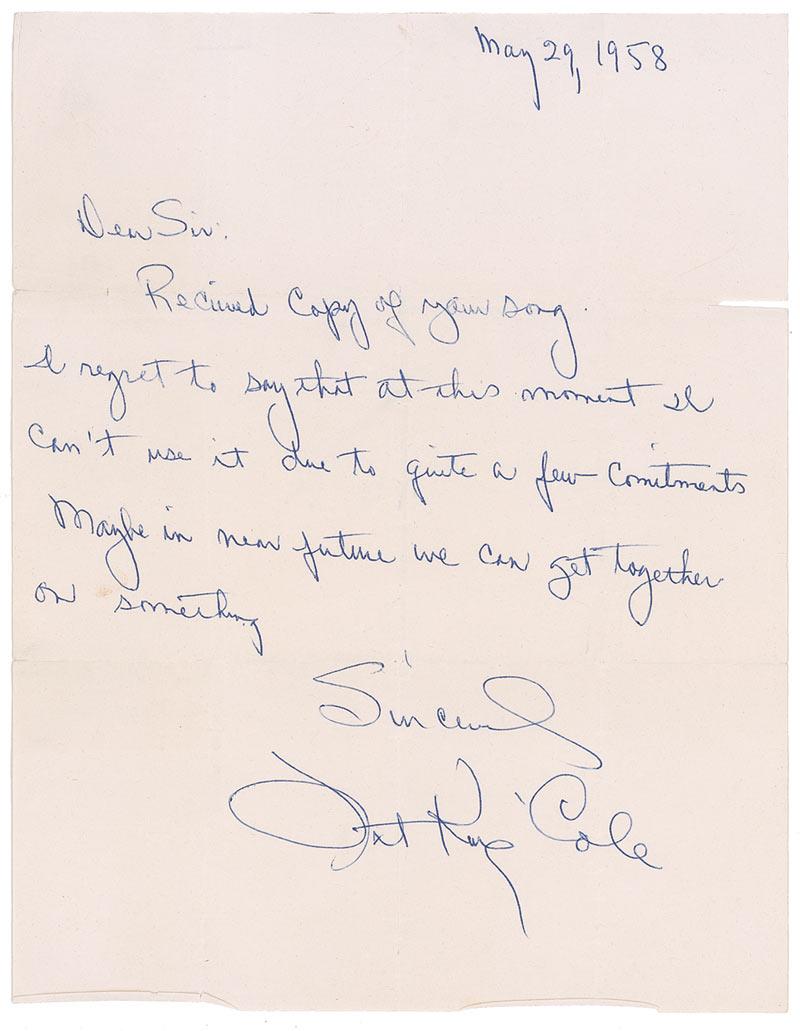 May 29, 1958
Dear Sir:
Recieved Copy of your song.
I regret to say that at this moment I
Can't use it due to quite a few Comitments
Maybe in near future we can get together
on something
Sincerely
Nat King Cole